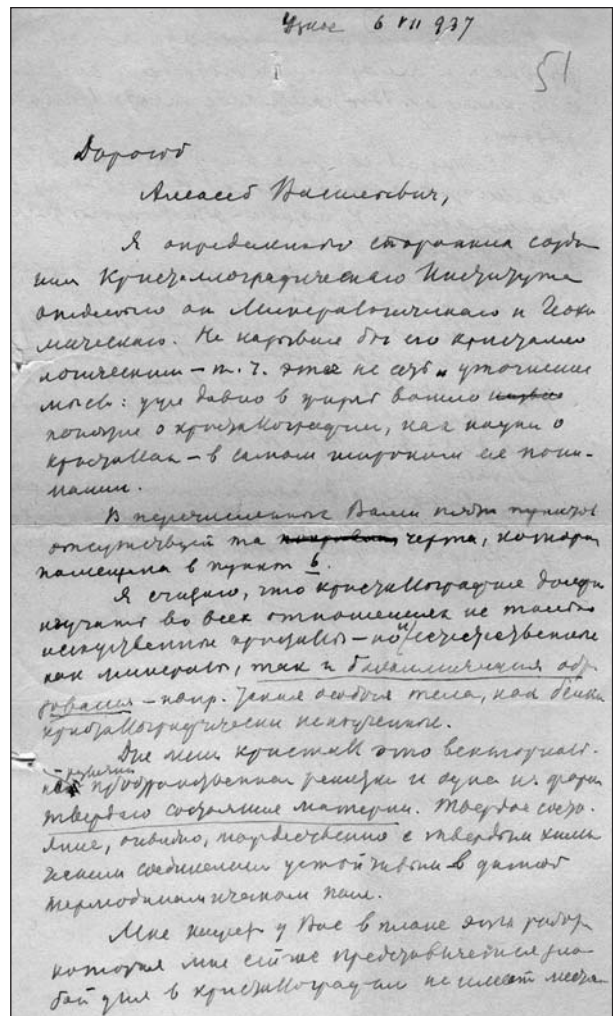 Узкое 6 VII 937
51
Дорогой
Алексей Васильевич,
Я определенно сторонник созда
ния Кристаллографического Института
отдельно от Минералогического и Геохи
мического. Не называл бы его кристалло
логическим – т. ч. это не есть уточнение
мысли: уже давно в жизнь вошло
понятие о кристаллографии, как науки о
кристаллах – в самом широком ее пони-
мании.
В перечисленных Вами пяти пунктах
отсутствует та черта, которая
помещена в пункт 6.
Я считаю, что кристаллография должна
изучать во всех отношениях не только
искусственные кристаллы – но и естественные
как минералы, так и биохимические обр
зования – напр. такие особые тела, как белки
кристаллографически неизученные.
Для меня кристалл это векториаль-
ная пространственная решетка и одна из форм
твердого состояния материи. Твердое состо
яние, очевидно, тождественно с твердым хими
ческим соединением устойчивым в данном
термодинамическом поле.
Мне кажется у Вас в плане эта работа
которая мне сейчас представляется
для в кристаллографии не имеет места